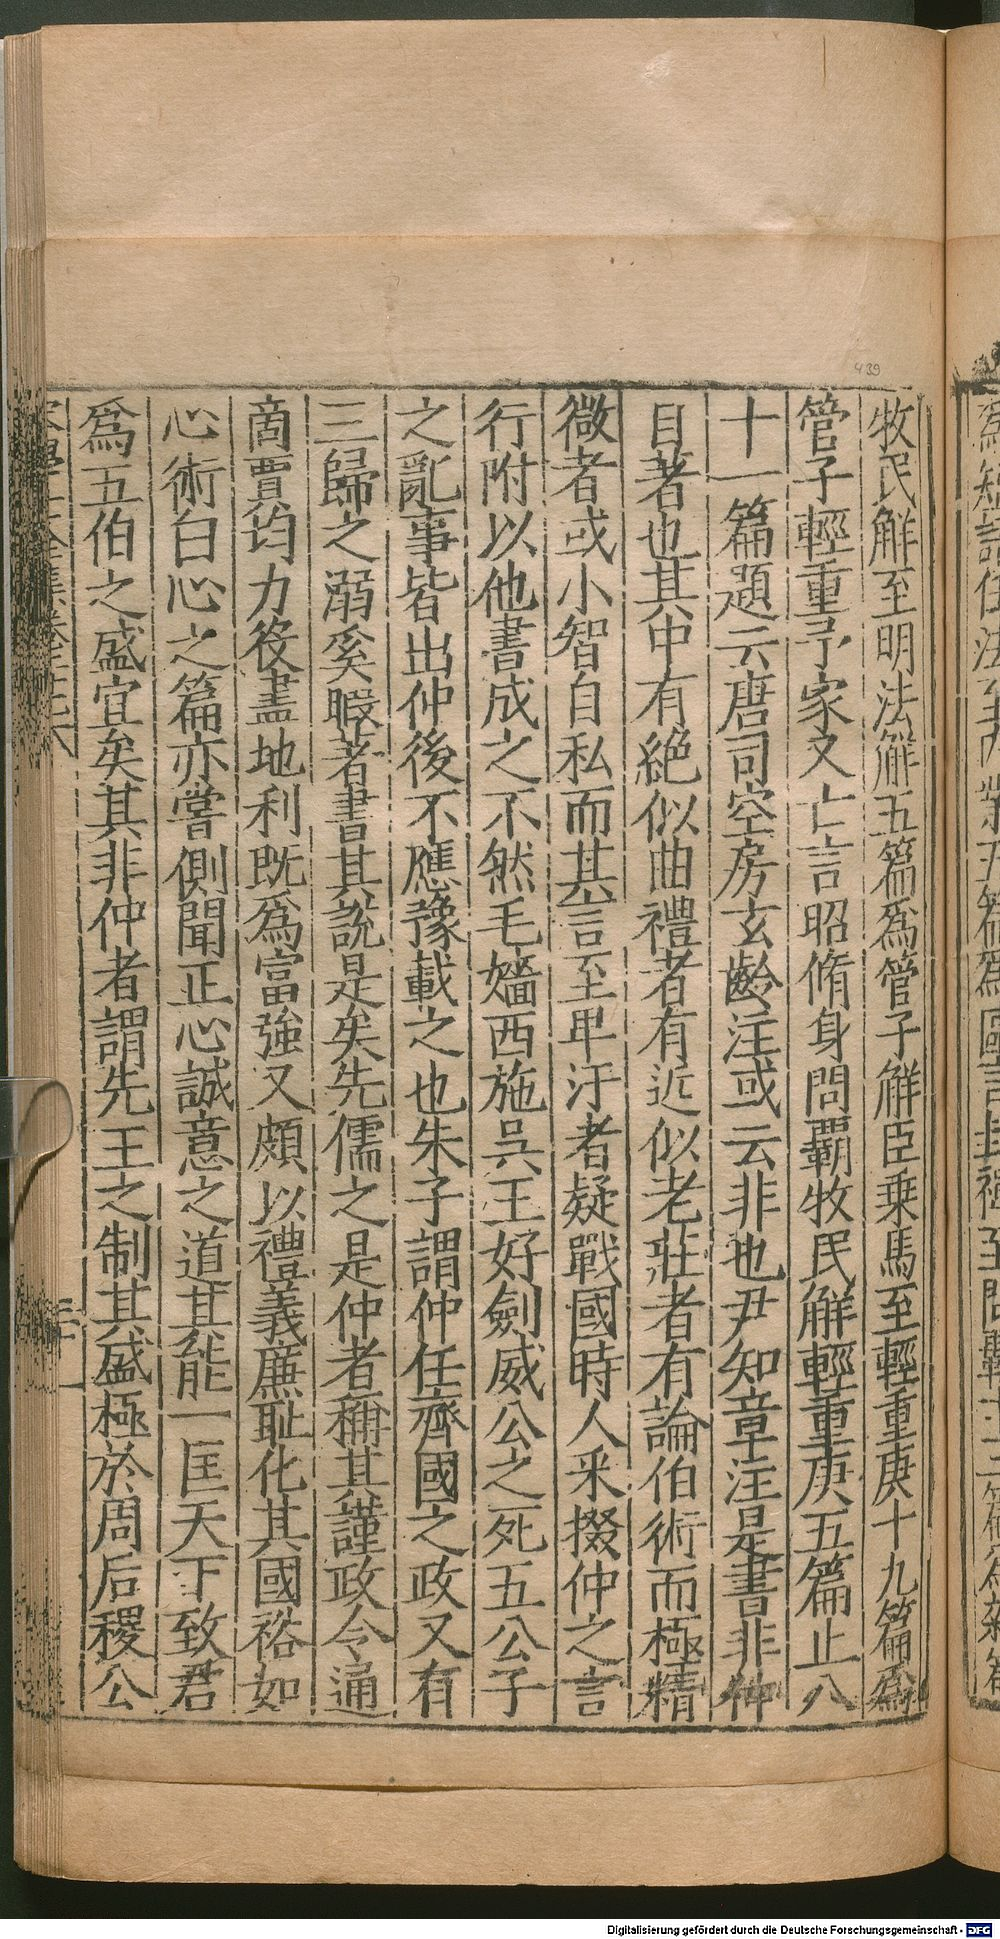 牧民解至明法解五篇爲管子解臣乗馬至輕重庚十九篇爲
管子輕重予家又亡言昭脩身問覇牧民解輕重庚五篇止八
十一篇題云唐司空房玄齡注或云非也尹知章注是書非仲
自著也其中有絶似曲禮者有近似老莊者有論伯術而極精
微者或小智自私而其言至卑汙者疑戰國時人采掇仲之言
行附以他書成之不然毛嬙西施吳王好劍威公之死五公子
之亂事皆出仲後不應豫載之也朱子謂仲任齊國之政又有
三歸之溺奚暇著書其說是矣先儒之是仲者稱其謹政令通
啇賈均力役盡地利既爲富強又頗以禮義廉恥化其國裕如
心術白心之篇亦嘗側聞正心誠意之道其能一匡天下致君
爲五伯之盛宜矣其非仲者謂先王之制其盛極於周后稷公
439
Digitalisierung gefördert durch die Deutsche Forschungsgemeinschaft - DFG